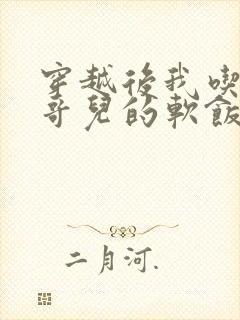 穿越後我喫
哥兒的軟飯
二月河.